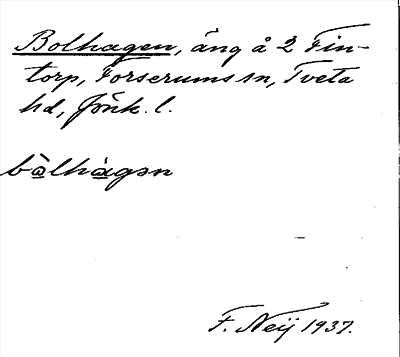 Bolhagen, äng å 2 Fin-
torp, Forserums sn, Tveta
hd, Jönk. l.
bòlhàgən
F. Neij 1937.